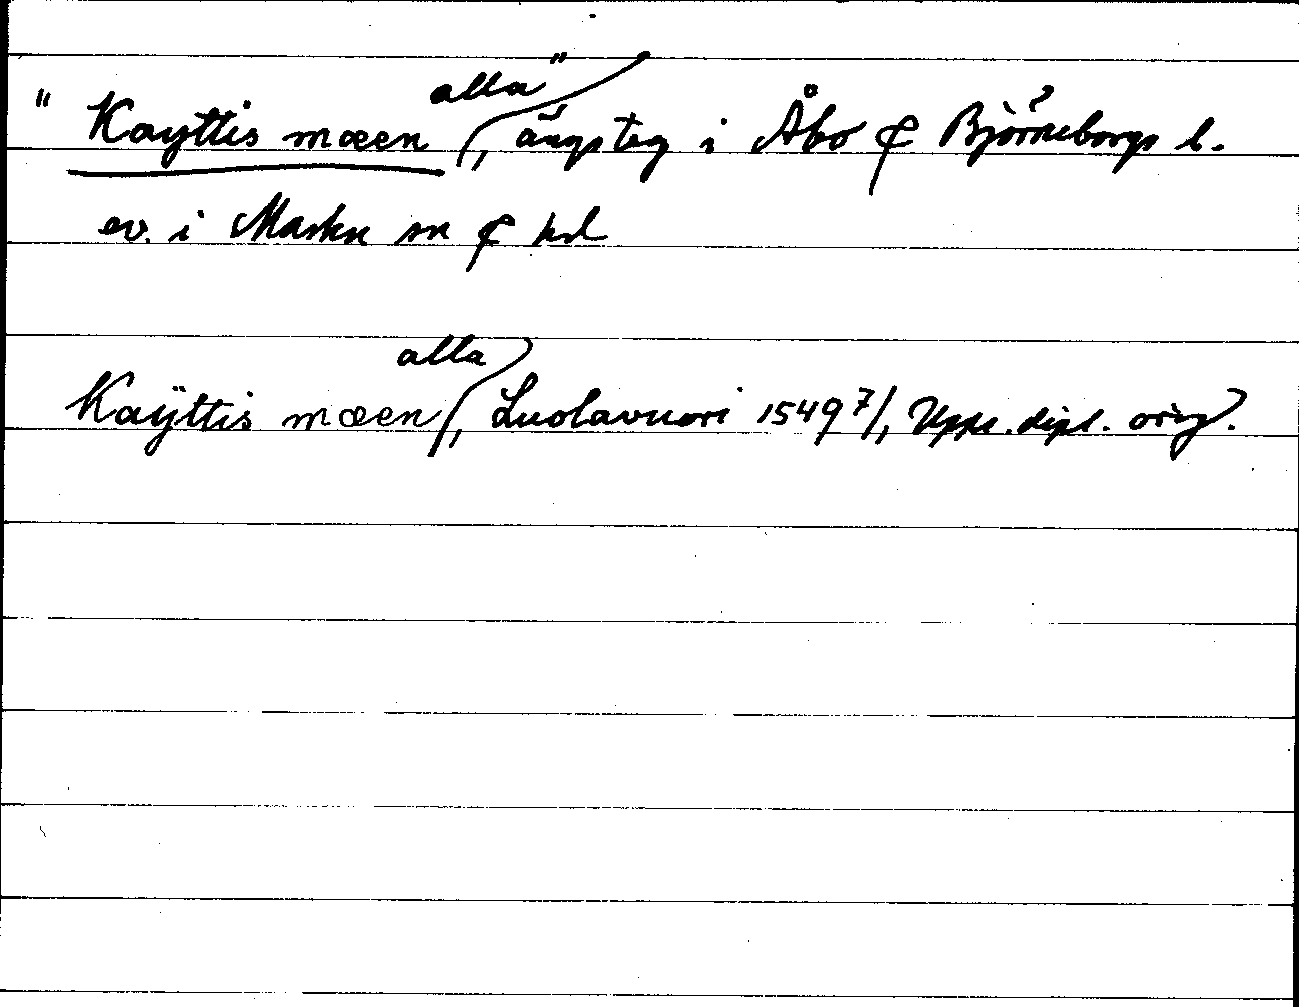 "Kayttis mæen alla", ängsteg i Åbo & Björneborgs l.
ev. i Masku sn & hd
Kaÿttis mæen alla, Luolavuori 1549 7/, Upps. dipl. orig.